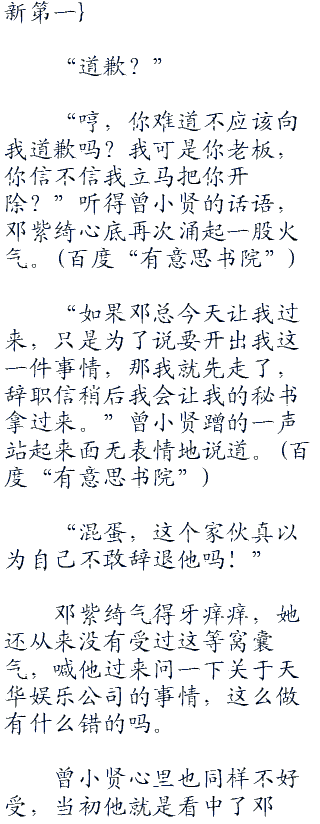 新第一}
“道歉？”
“哼，你难道不应该向
我道歉吗？我可是你老板，
你信不信我立马把你开
除？”听得曾小贤的话语，
邓紫绮心底再次涌起一股火
气。(百度“有意思书院”)
“如果邓总今天让我过
来，只是为了说要开出我这
一件事情，那我就先走了，
辞职信稍后我会让我的秘书
拿过来。”曾小贤蹭的一声
站起来面无表情地说道。(百
度“有意思书院”)
“混蛋，这个家伙真以
为自己不敢辞退他吗！”
邓紫绮气得牙痒痒，她
还从来没有受过这等窝囊
气，喊他过来问一下关于天
华娱乐公司的事情，这么做
有什么错的吗。
曾小贤心里也同样不好
受，当初他就是看中了邓